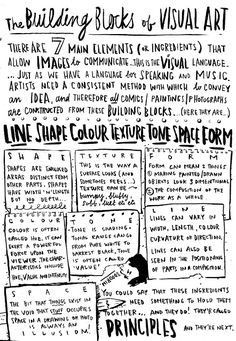 the Building Blocks of VISUAL ART
THERE ARE 7 MAIN ELEMENTS (OR INGREDIENTS) THAT
ALLOW IMAGES to COMMUNICATE. THIS IS THE VISUAL LANGUAGE.
... JUST AS WE HAVE A LANGUAGE for SPEAKING AND MUSIC,
ARTISTS NEED A CONSISTENT METHOD WITH WHICH to CONVEY
an IDEA, AND THEREFORE all COMICS/PAINTINGS/PHOTOGRAPHS
are CONSTRUCTED FROM THESE BUILDING BLOCKS. (HERE THEY ARE.)
LINE SHAPE COLOUR TEXTURE TONE SPACE FORM
SHAPE
SHAPES ARE ENCLOSED
AREAS DISTINCT FROM
OTHER PARTS. SHAPES
HAVE WIDTH & LENGTH
BUT NO DEPTH.
TEXTURE
THIS IS THE WAY A
SURFACE LOOKS (AND
SOMETIMES FEELS.)
TEXTURE CAN BE
FORM
FORM CAN MEAN 2 THINGS
① MAKING PAINTED/DRAWN
OBJECTS LOOK 3 DIMENSIONAL
② THE COMPOSITION OF THE
WORK AS A WHOLE
COLOUR
COLOUR IS OFTEN
CALLED HUE, IT CAN
EXERT A POWERFUL
FORCE UPON THE
VIEWER. THE CHAR-
ACTERISTICS INCLUDE
TONE
TONE IS SHADING.
TONAL RANGE CAN GO
FROM PURE WHITE TO
DARKEST BLACK. TONE
IS OFTEN CALLED
"VALUE"
LINE
LINES CAN VARY IN
WIDTH, LENGTH, COLOUR
CURVATURE OR DIRECTION.
LINES CAN ALSO BE
SEEN IN THE POSITIONING
OF PARTS IN A COMPOSITION.
SPACE
THE BIT THAT THINGS EXIST IN
THE VOID THAT STUFF OCCUPIES.
SPACE IN A DRAWING OR PHOTO
IS ALWAYS AN
ILLUSION!
YOU COULD SAY THAT THESE INGREDIENTS
NEED SOMETHING TO HOLD THEM
TOGETHER... AND THEY DO! THEY'RE CALLED
PRINCIPLES AND THEY'RE NEXT.